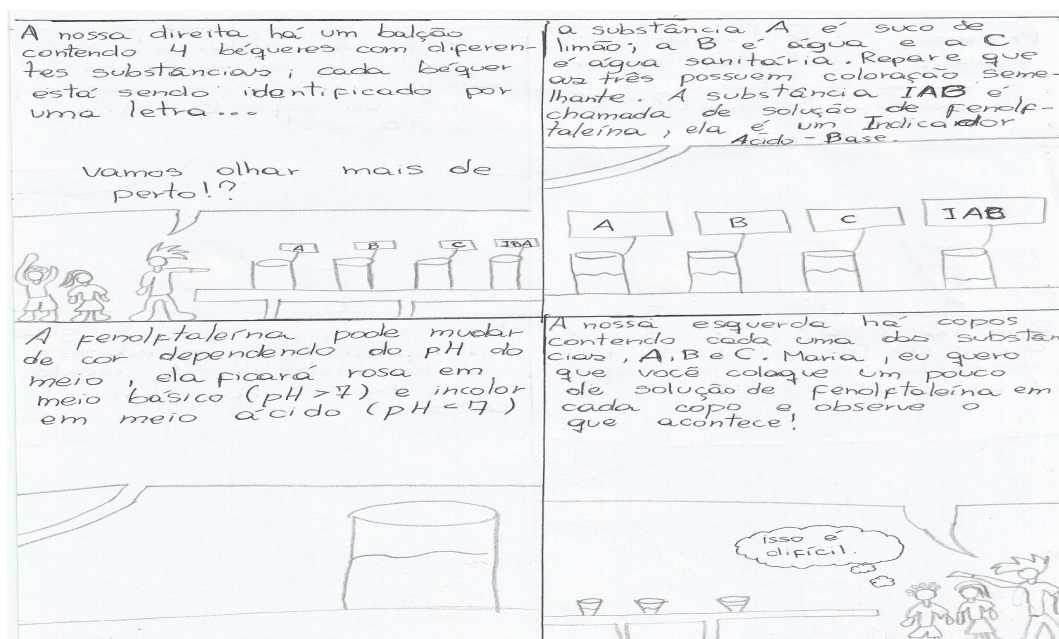 A nossa direita há um balção
contendo 4 béqueres com diferen-
tes substâncias; cada béquer
está sendo identificado por
uma letra...
Vamos olhar mais de
perto!?
A
B
C
IBA
a substância A é suco de
limão; a B é água e a C
é água sanitária. Repare que
as três possuem coloração seme-
lhante. A substância IAB é
chamada de solução de fenolf-
taleína, ela é um Indicador
Ácido-Base.
A
B
C
IAB
A fenolftaleína pode mudar
de cor dependendo do pH do
meio, ela ficará rosa em
meio básico (pH > 7) e incolor
em meio ácido (pH < 7)
A nossa esquerda há copos
contendo cada uma das substân
cias, A, B e C. Maria, eu quero
que você coloque um pouco
de solução de fenolftaleína em
cada copo e observe o
que acontece!
isso é
difícil.